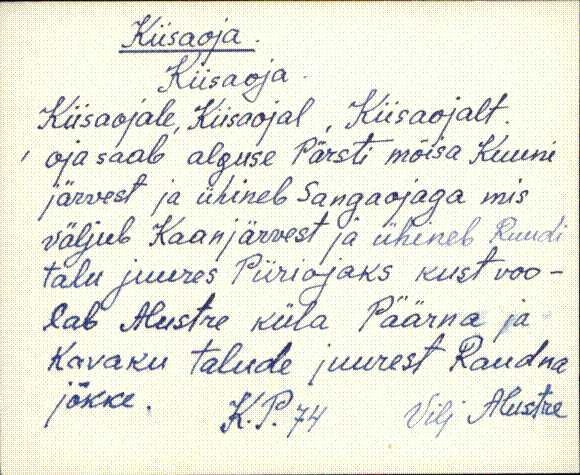 Kiisaoja.
Kiisaoja.
Kiisaojale, Kiisaojal, Kiisaojalt.
oja saab alguse Pärsti mõisa Kuuni
järvest ja ühineb Sangaojaga mis
väljub Kaanjärvest ja ühineb Ruudi
talu juures Piiriojaks kust voo-
lab Alustre küla Päärna ja
Kavaku talude juurest Raudna
jõkke.
K.P. 74 Vilj Alustre